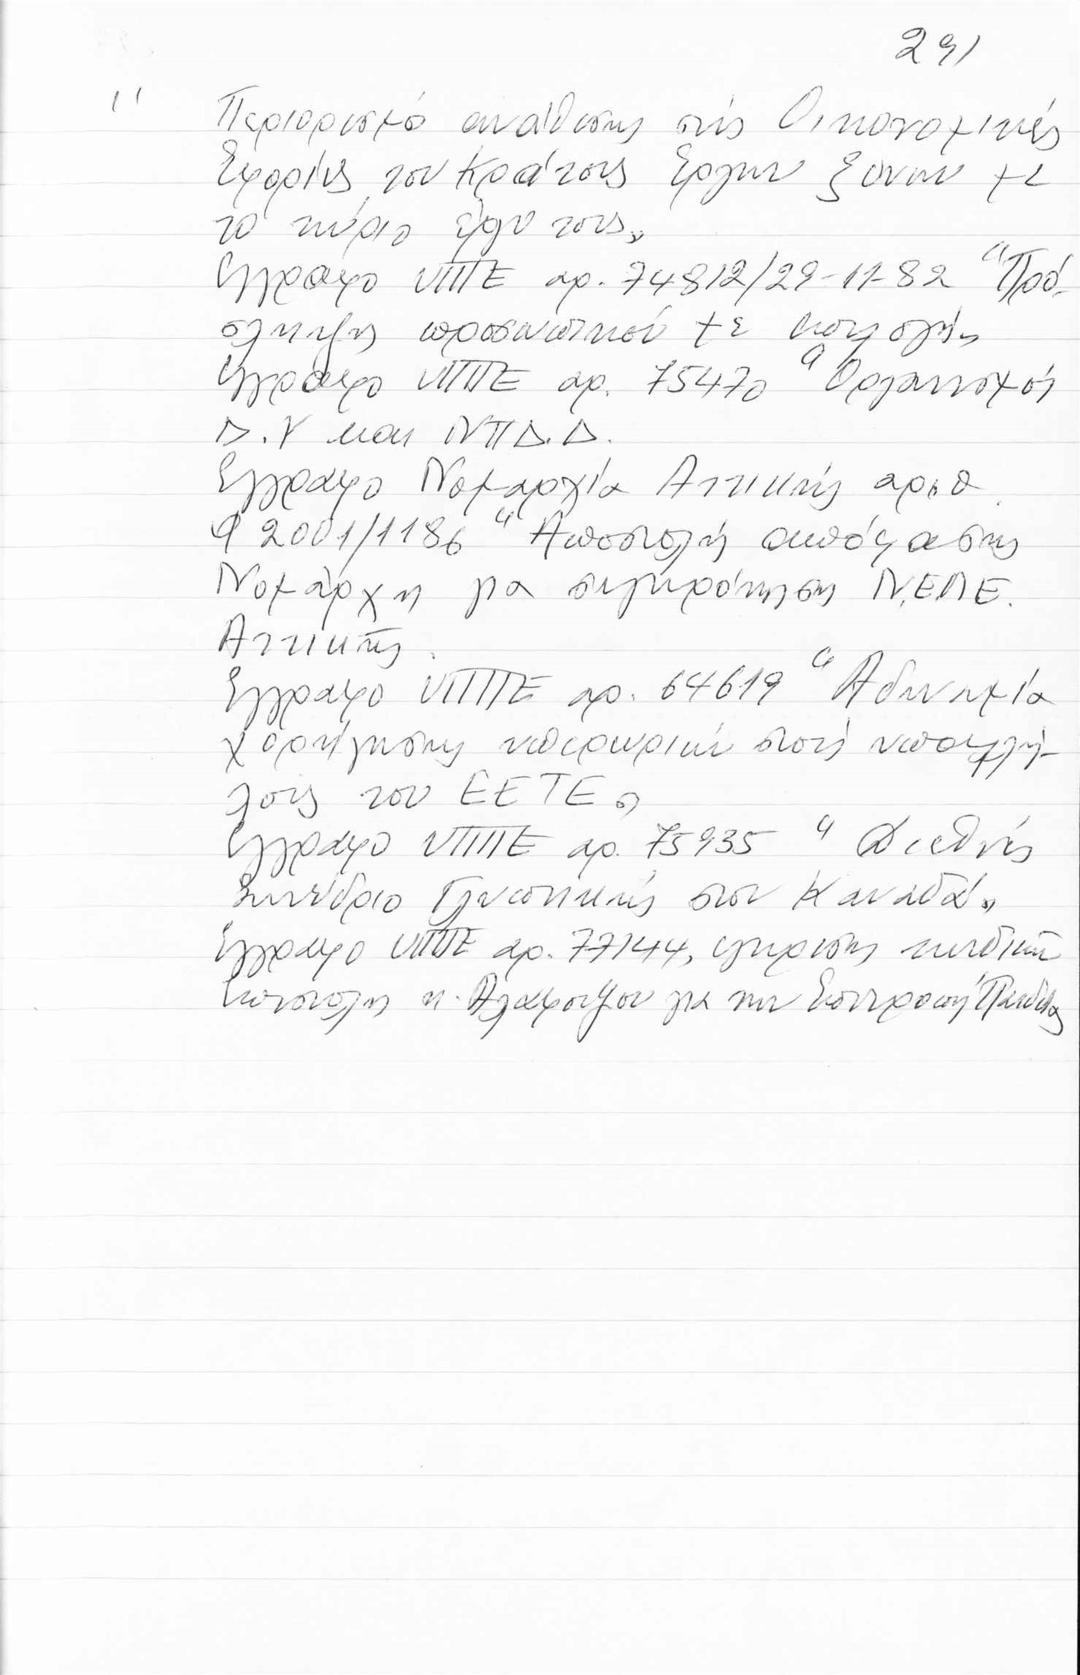 291
'' Περιορισμό ανάθεσης στις Οικονομικές
Εφορίες του Κράτους Έργων ξένων με
το κύριο έργο τους„
Έγγραφο ΥΠΠΕ αρ. 74812/29-11-82 "Πρό-
σληψης προσωπικού με
Έγγραφο ΥΠΠΕ αρ. 75470 "Οργανισμοί
Δ.Υ και ΝΠΔ.Δ.
Έγγραφο Νομαρχία Αττικής αριθ.
Φ 2001/1186 "Αποστολή απόφασης
Νομάρχη για συγκρότηση Ν.ΕΛΕ.
Αττικής.
Έγγραφο ΥΠΠΕ αρ. 64619 "Αδυναμία
χορήγησης υπερωριών στους υπαλλή-
λους του ΕΕΤΕ„
Έγγραφο ΥΠΠΕ αρ. 75935 " Διεθνές
Συνέδριο Γλυπτικής στον Καναδά„
Έγγραφο ΥΠΠΕ αρ. 77144, συνδικ
επιστολή κ. Αλαφούζου για την Επιτροπή Παιδεία